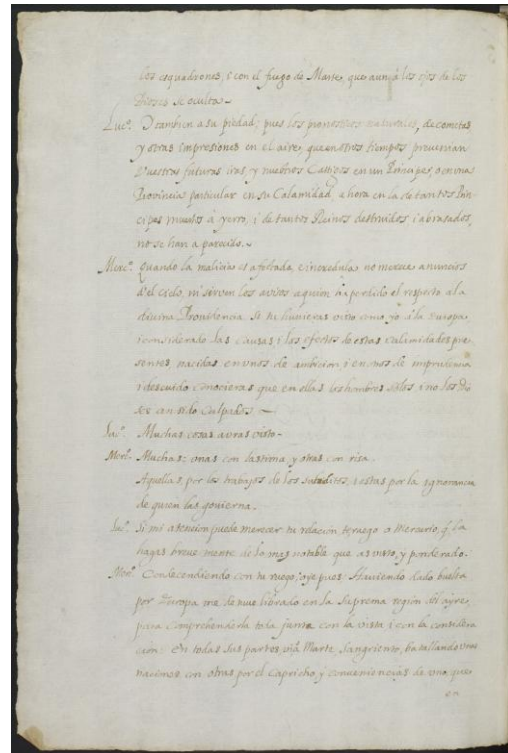 los esquadrones, i con el fuego de Marte, que aun à los ojos de los
Dioses se oculta.
Luc.º I tambien a su piedad; pues los pronosticos naturales, de cometas
y otras impresiones en el aire, que en otros tiempos prevenian
Vuestras futuras iras, y nuestros Castigos en un Principe, o en una
Provincia particular en su Calamidad, ahora en la de tantos Prin-
cipes muertos à yerro, i de tantos Reinos destruidos, i abrasados,
no se han a parecido.
Merc.º Quando la malicia es afectada, e incredula no merece anuncios
d'el cielo, ni sirven los avisos a quien ha perdido el respeto a la
divina Providencia. Si tu hunieras visto como yo à la Europa
i considerado las causas i los efectos de estas calamidades pre-
sentes, nacidas en unos de ambicion, i en otros de imprudencia
i descuido, conocieras que en ellas los hombres solos, i no los Dio
ses an sido Culpados.
Luc.º Muchas cosas avras visto.
Merc.º Muchas: unas con lastima, y otras con risa.
Aquellas por los trabajos de los subditos, i estas por la ignorancia
de quien las govierna.
Luc.º Si mi atencion puede merecer tu relacion, te ruego o Mercurio, q̃ la
hagas breve mente de lo mas notable que as visto, y ponderado.
Mer.º Condecendiendo con tu ruego; oye pues. Haviendo dado buelta
por Europa me detuve librado en la Suprema region del ayre,
para comprehenderla toda junta con la vista i con la considera
cion: En todas sus partes vi à Marte Sangriento, batallando unas
naciones con otras por el Capricho, y conveniencias de uno, que
en